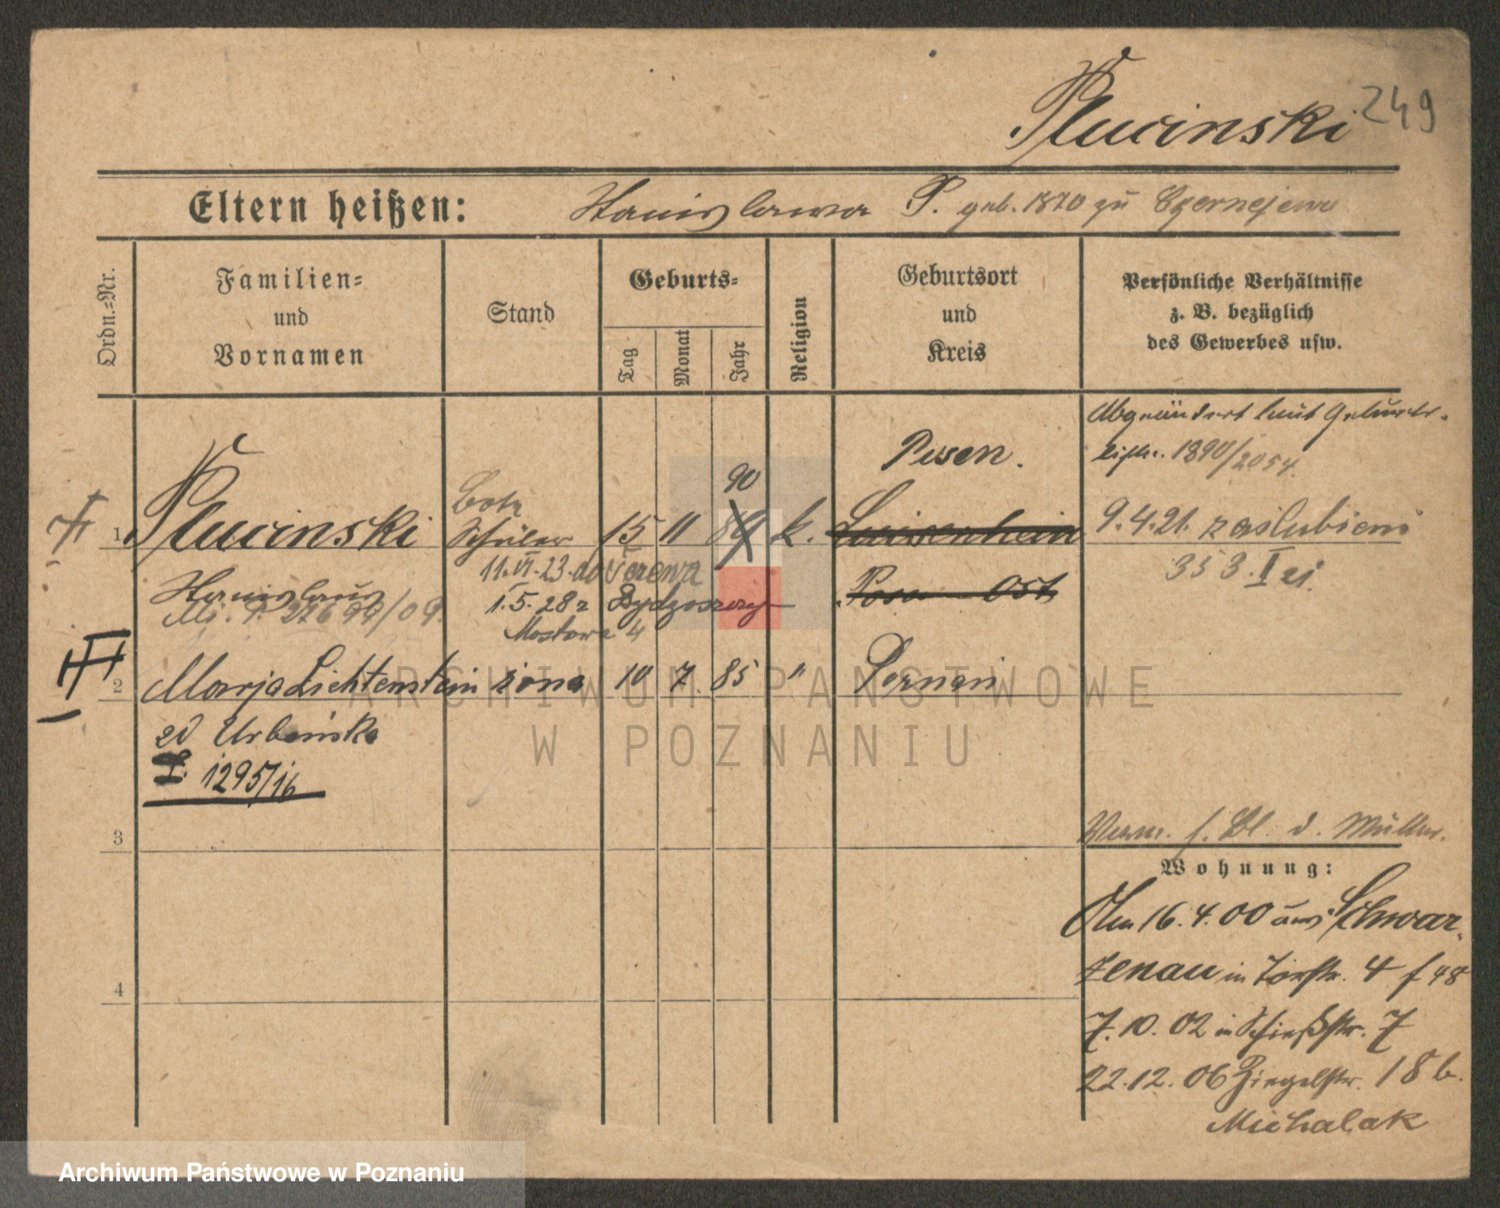 Plucinski 249
Eltern heißen: Stanislawa P. geb. 1870 zu Czernejewo
Ordn.-Nr.
Familien-
und
Vornamen
Stand
Geburts-
Tag
Monat
Jahr
Religion
Geburtsort
und
Kreis
Persönliche Verhältnisse
z. B. bezüglich
des Gewerbes usw.
Abgeändert laut Geburts-
1890/2054.
Posen.
90
1 Plucinski Schüler 15 11 89 k. Luisenhein 9.4.21. zaślubieni
353.I
Stanislaus 11.VI.23 do Posen Ost
1.5.28 z Bydgoszczy
Mostowa 4
2 Marja Lichtenstein żona 10 7 85 " Poznań
Urbańska
I. 1295/16
3
Verm. f. Bl. d. Mutter.
Wohnung:
16.4.00 aus Schwar-
zenau in Torstr. 4 f 48
4
7.10.02 in Schießstr. 7
22.12.06 Ziegelstr. 18 b.
Michalak
ARCHIWUM PAŃSTWOWE
W POZNANIU
Archiwum Państwowe w Poznaniu